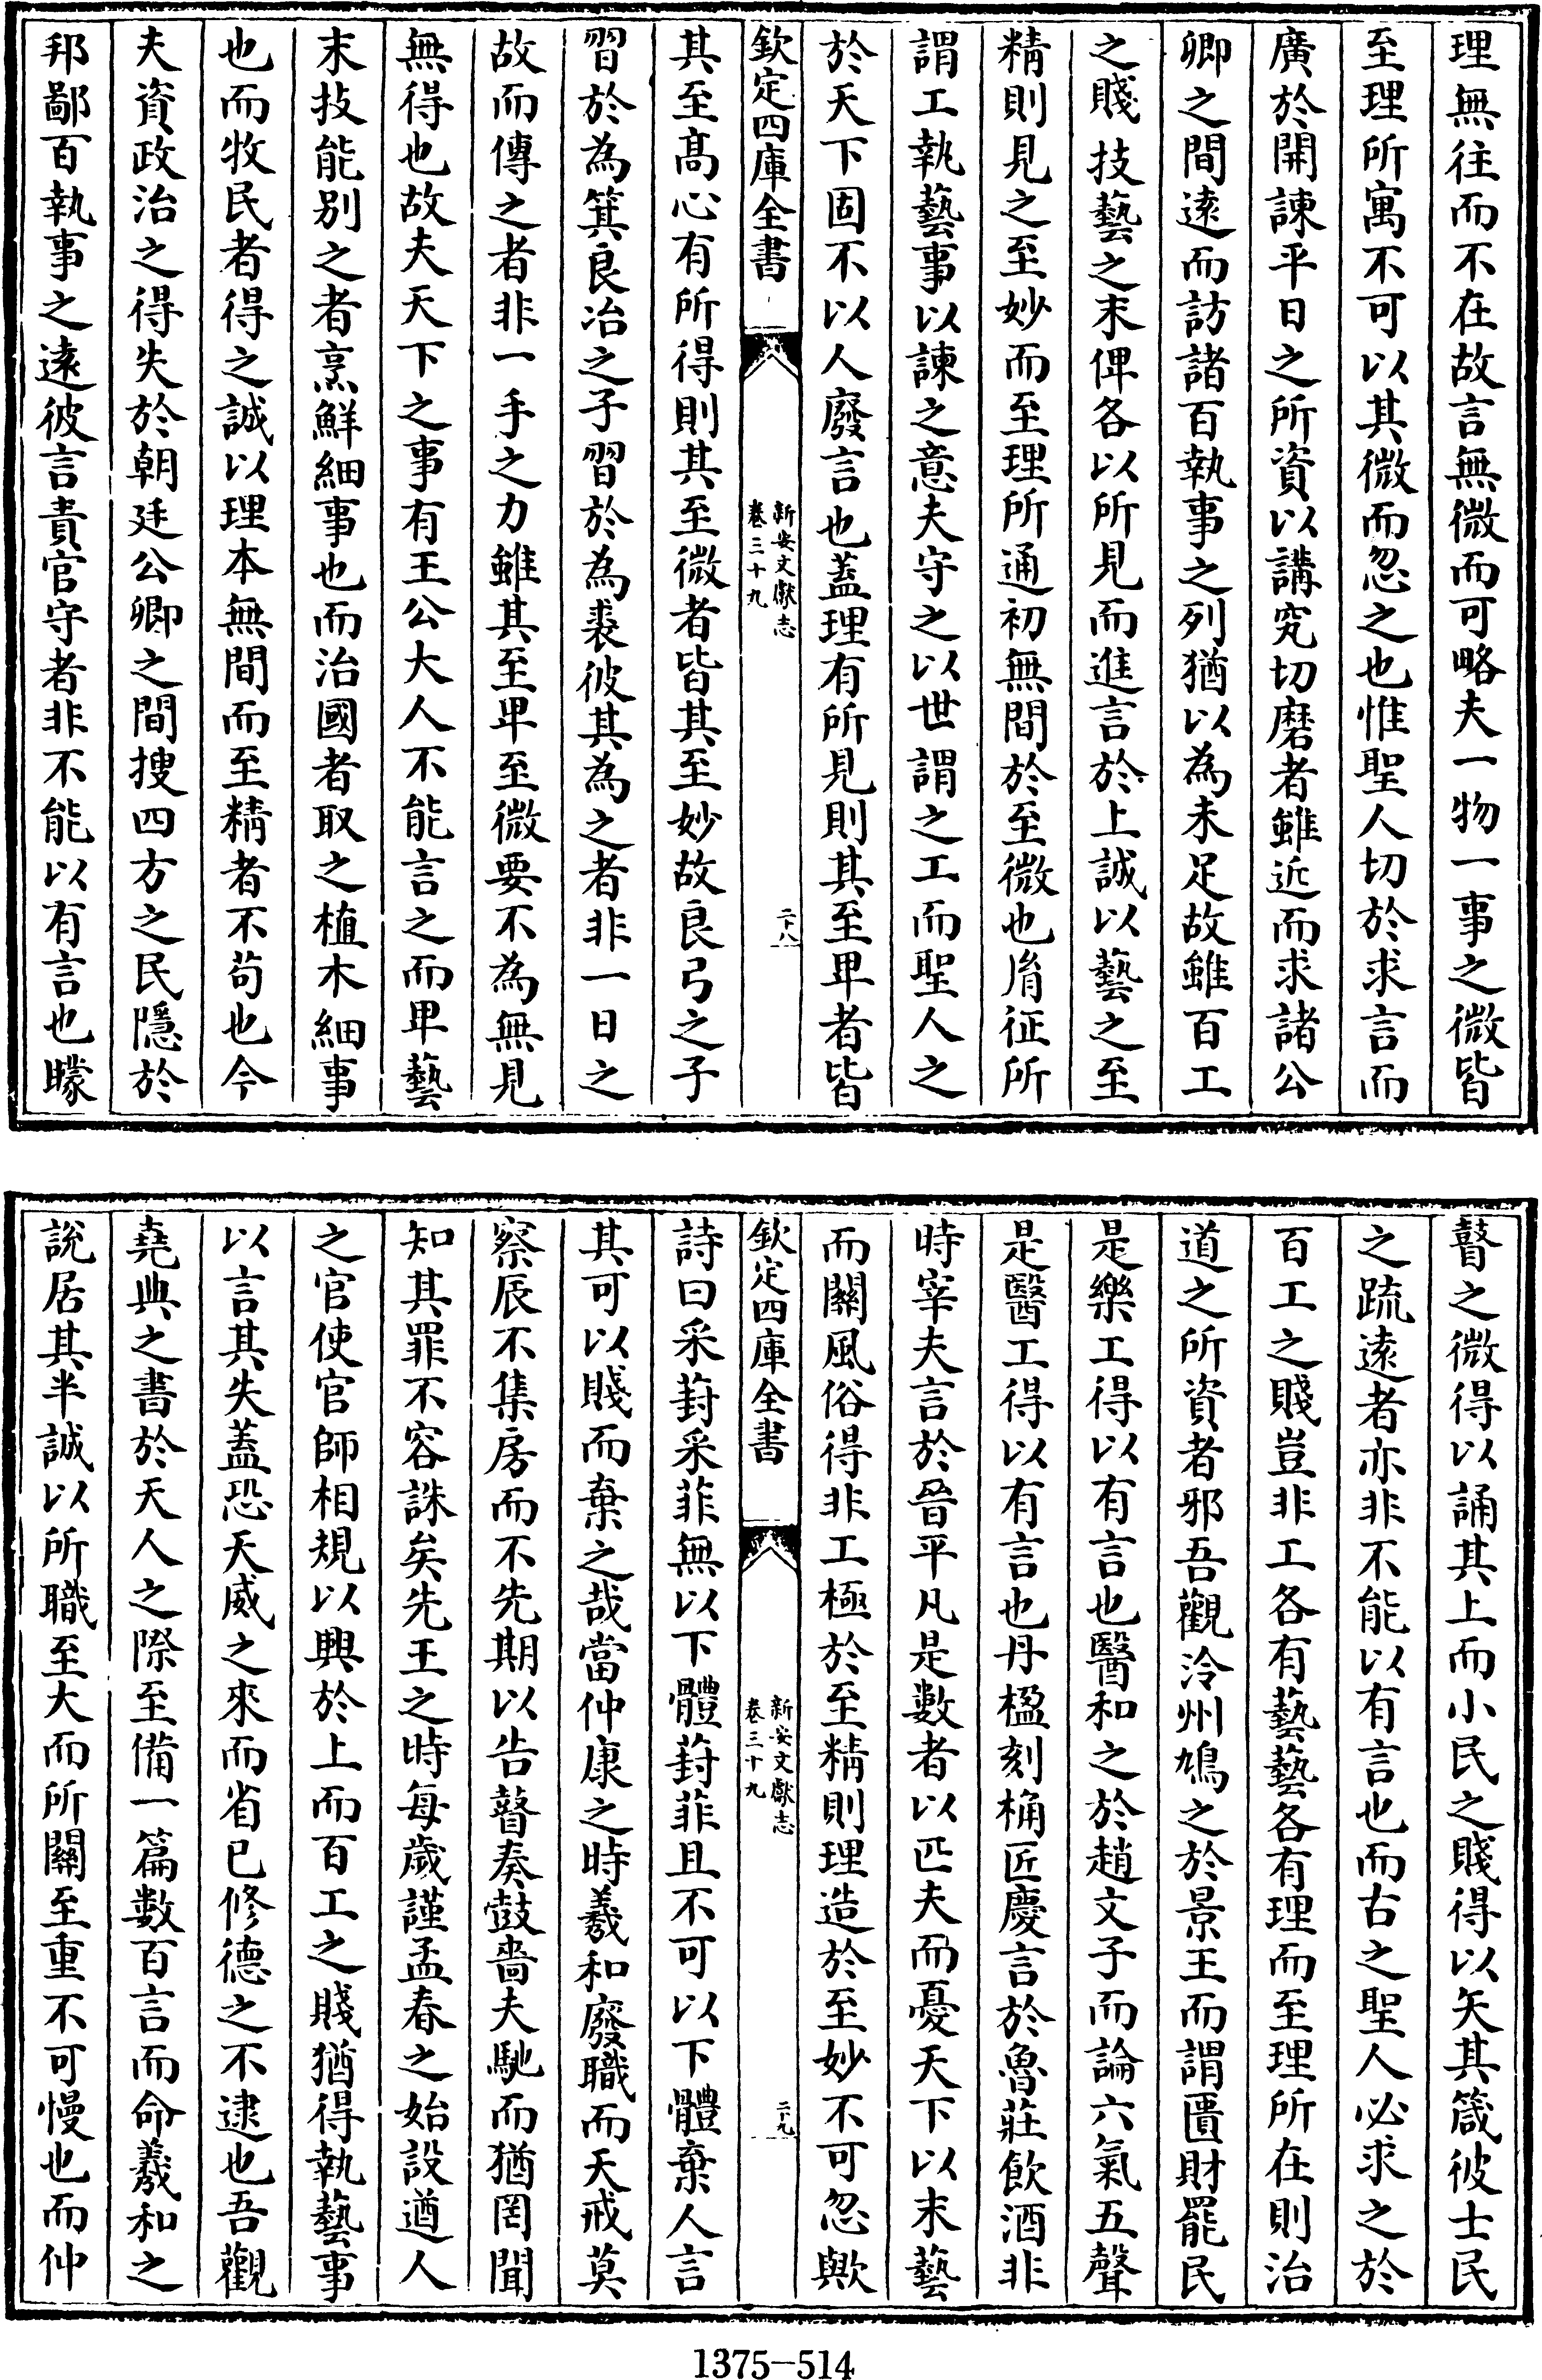 理無往而不在故言無微而可略夫一物一事之微皆
至理所寓不可以其微而忽之也惟聖人切於求言而
廣於開諫平日之所資以講究切磨者雖近而求諸公
卿之間遠而訪諸百執事之列猶以為未足故雖百工
之賤技藝之末俾各以所見而進言於上誠以藝之至
精則見之至妙而至理所通初無間於至微也胤征所
謂工執藝事以諫之意夫守之以世謂之工而聖人之
於天下固不以人廢言也蓋理有所見則其至卑者皆
欽定四庫全書
新安文獻志
卷三十九
二十八
其至高心有所得則其至微者皆其至妙故良弓之子
習於為箕良冶之子習於為裘彼其為之者非一日之
故而傳之者非一手之力雖其至卑至微要不為無見
無得也故夫天下之事有王公大人不能言之而卑藝
末技能別之者烹鮮細事也而治國者取之植木細事
也而牧民者得之誠以理本無間而至精者不苟也今
夫資政治之得失於朝廷公卿之間搜四方之民隱於
邦鄙百執事之遠彼言責官守者非不能以有言也矇
瞽之微得以誦其上而小民之賤得以矢其箴彼士民
之疏遠者亦非不能以有言也而古之聖人必求之於
百工之賤豈非工各有藝藝各有理而至理所在則治
道之所資者邪吾觀泠州鳩之於景王而謂匱財罷民
是樂工得以有言也醫和之於趙文子而論六氣五聲
是醫工得以有言也丹楹刻桷匠慶言於魯莊飲酒非
時宰夫言於晉平凡是數者以匹夫而憂天下以末藝
而關風俗得非工極於至精則理造於至妙不可忽歟
欽定四庫全書
新安文獻志
卷三十九
二十九
詩曰采葑采菲無以下體葑菲且不可以下體棄人言
其可以賤而棄之哉當仲康之時羲和廢職而天戒莫
察辰不集房而不先期以告瞽奏鼓嗇夫馳而猶罔聞
知其罪不容誅矣先王之時每歲謹孟春之始設遒人
之官使官師相規以興於上而百工之賤猶得執藝事
以言其失蓋恐天威之來而省已修德之不逮也吾觀
堯典之書於天人之際至備一篇數百言而命羲和之
說居其半誠以所職至大而所關至重不可慢也而仲
1375-514